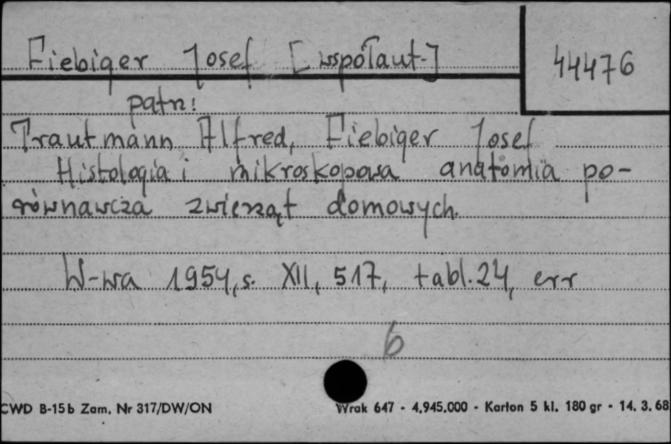 Fiebiger Josef [współaut.]
44476
patrz:
Trautmann Alfred, Fiebiger Josef
Histologia i mikroskopowa anatomia po-
równawcza zwierząt domowych.
W-wa 1954, s. XII, 517, tabl. 24, err
6
CWD B-15b Zam. Nr 317/DW/ON
Wrak 647 - 4.945.000 - Karton 5 kl. 180 gr - 14. 3. 68